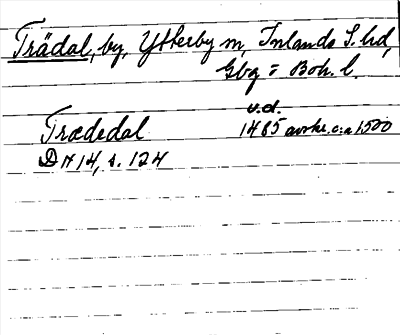 Trädal, by, Ytterby sn, Inlands S. hd,
Gbg o Boh. l.
u.d.
Trædedal 1485 avskr. c:a 1500
DN 14, s. 124